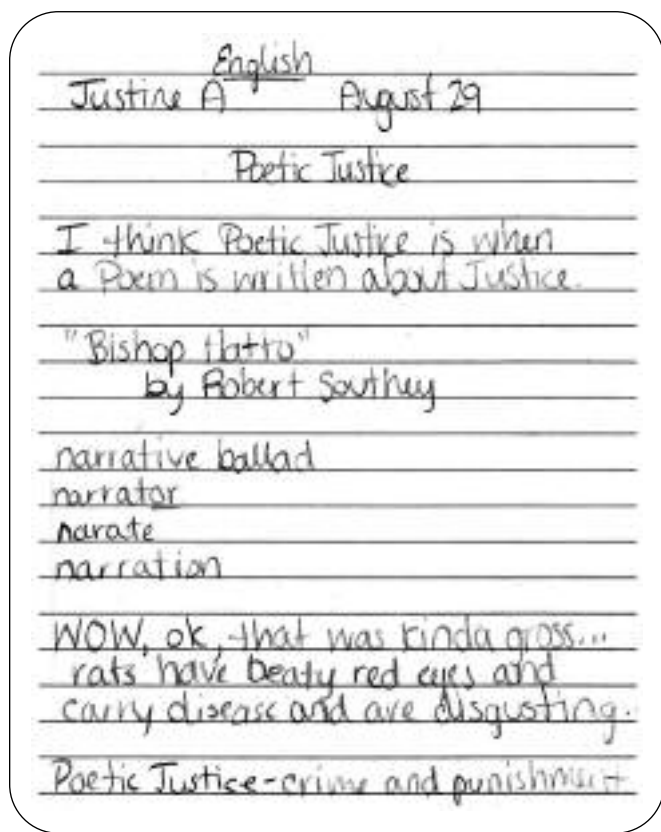 English
Justine A August 29
Poetic Justice
I think Poetic Justice is when
a Poem is written about Justice.
"Bishop Hatto"
by Robert Southey
narrative ballad
narrator
narate
narration
WOW, ok, that was kinda gross...
rats have beaty red eyes and
carry disease and are disgusting.
Poetic Justice-crime and punishment